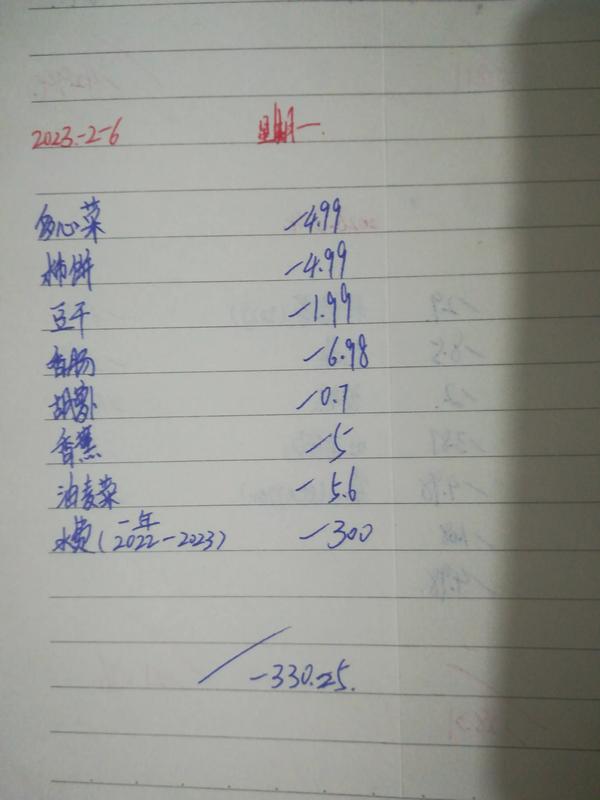 2023.-2-6 星期一
包心菜 -4.99
柿饼 -4.99
豆干 -1.99
香肠 -6.98
胡萝卜 -0.7
香蕉 -5
油麦菜 -5.6
水费(一年 2022-2023) -300
-330.25.